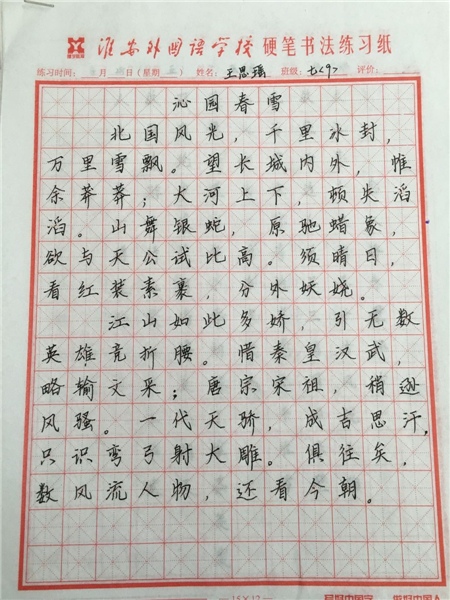 淮安外国语学校 硬笔书法练习纸
练习时间: 月 日(星期 ) 姓名: 王思瑶 班级: 七<9> 评价:
沁园春雪
北国风光,千里冰封,
万里雪飘。望长城内外,惟
余莽莽;大河上下,顿失滔
滔。山舞银蛇,原驰蜡象,
欲与天公试比高。须晴日,
看红装素裹,分外妖娆。
江山如此多娇,引无数
英雄竞折腰。惜秦皇汉武,
略输文采;唐宗宋祖,稍逊
风骚。一代天骄,成吉思汗,
只识弯弓射大雕。俱往矣,
数风流人物,还看今朝。
15×12